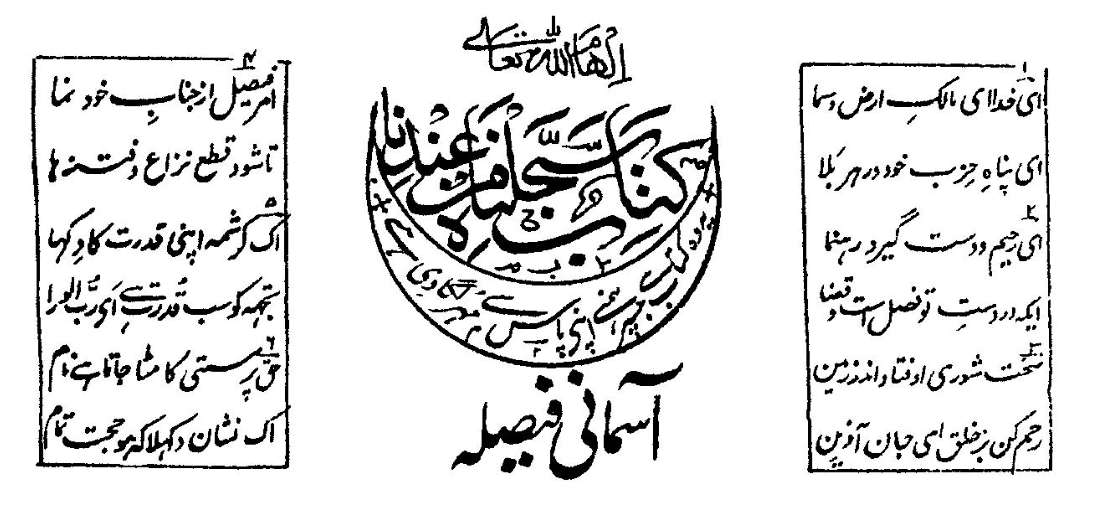 الہام اللہ تعالے
کِتَابٌ سَجَّلْنَاہُ مِنْ عِنْدِنَا
یہ وہ کتاب ہے جسپر ہمنے اپنی پاس سے مہر لگا دی ہے
آسمانی فیصلہ
۱
ای خدا ای مالکِ ارض و سما
ای پناہِ حِزبِ خود در ہر بَلا
۲
ای رحیم و دست گیر و رہنما
ایکہ در دستِ تو فصل است و قضا
۳
سخت شوری اوفتاد اندر زمین
رحم کن بر خلق ای جان آفرین
۴
امر فیصل از جنابِ خود نما
تا شود قطع نزاع و فتنہ ہا
۵
اک کرشمہ اپنی قدرت کا دِکہا
تجہہ کو سب قُدرت ہے اَی ربُّ الورا
۶
حق پرستی کا مٹا جاتا ہے نام
اک نشان دکہلا کہ ہو حجت تمام